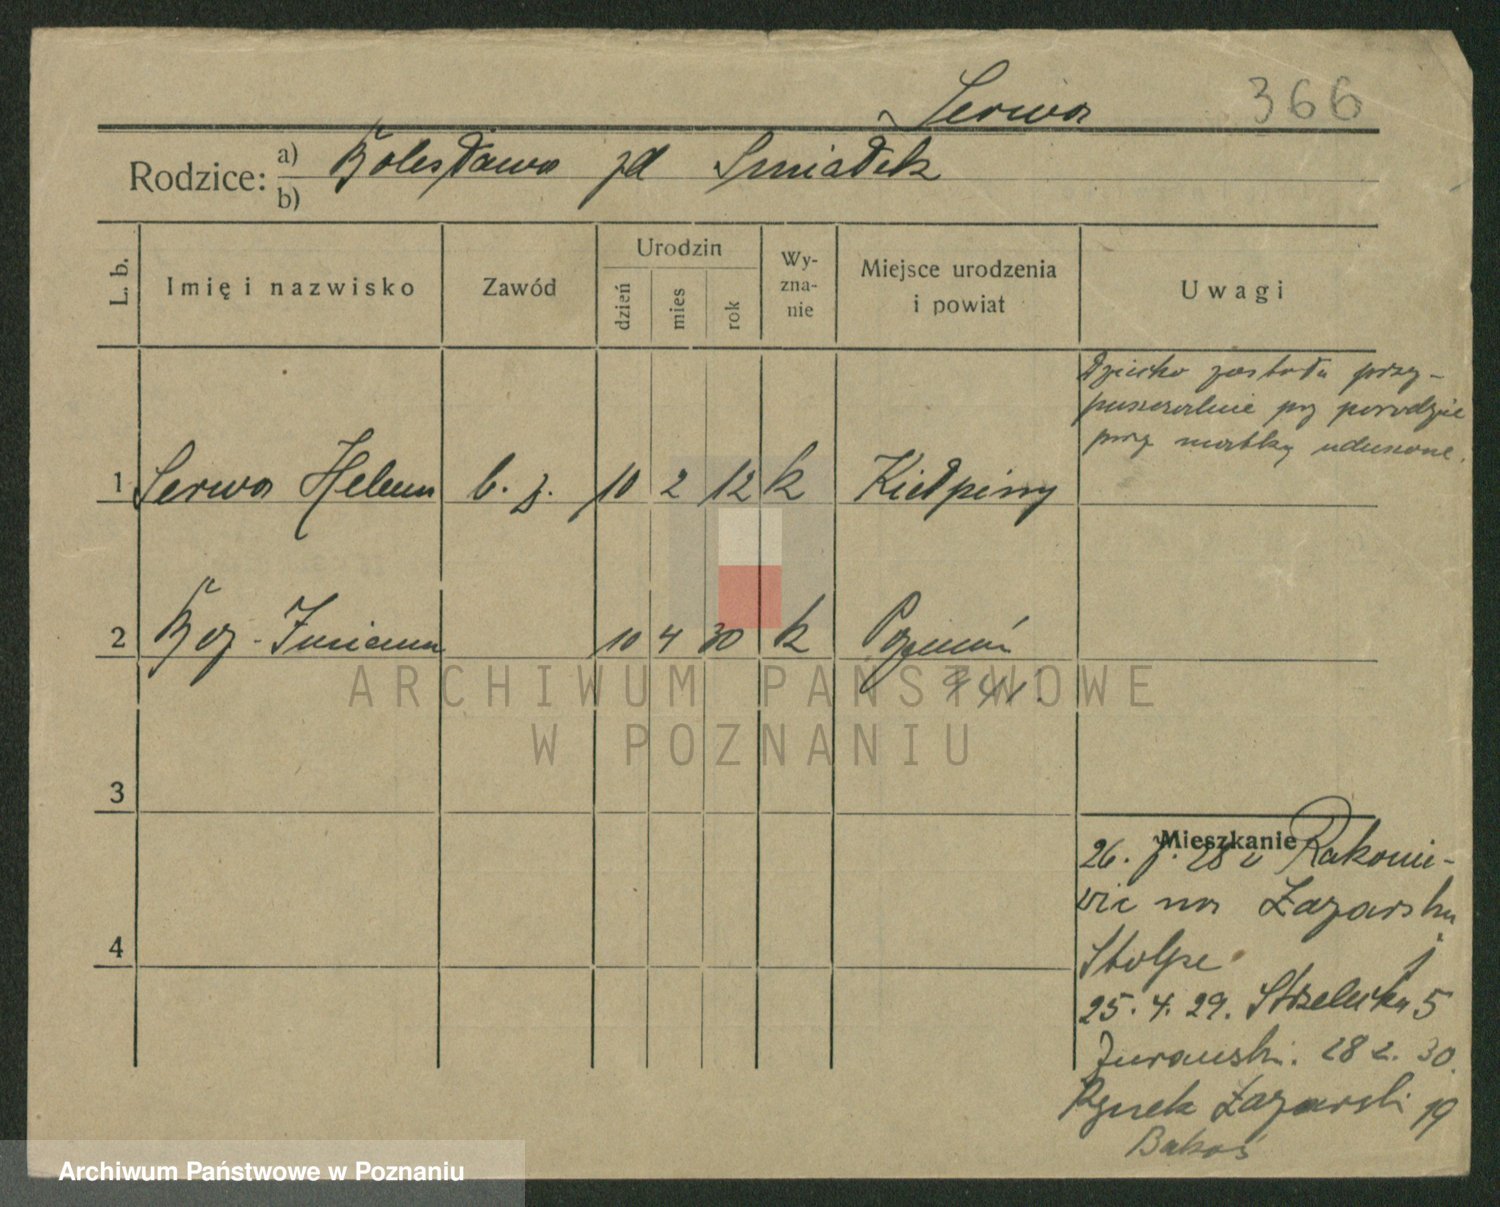 Serwa 366
Rodzice: a) Bolesława zd Smiałek
b)
L. b.
Imię i nazwisko
Zawód
Urodzin
dzień
mies
rok
Wy-
zna-
nie
Miejsce urodzenia
i powiat
Uwagi
Dziecko zostało przy-
puszczalnie przy porodzie
przez matkę uduszone.
1 Serwa Helena b. z. 10 2 12 k Kiełpiny
2 Boż. Imienna 10 4 30 k Poznań
3
4
Mieszkanie
26. 28 Rakonie-
wic na Łazarska
Stolpe
25. 4. 29. Strzelecka 5
Żurawski. 28 2. 30.
Rynek Łazarski 19
ARCHIWUM PAŃSTWOWE
W POZNANIU
Archiwum Państwowe w Poznaniu